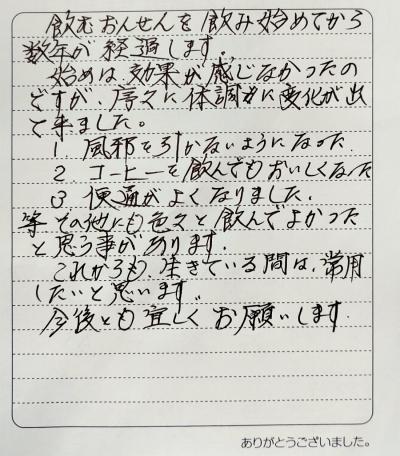 飲むおんせんを飲み始めてから
数年が経過します。
始めは効果が感じなかったの
ですが、序々に体調に変化が出
て来ました。
1 風邪を引かないようになった
2 コーヒーを飲んでもおいしくなった
3 便通がよくなりました。
等その他にも色々と飲んでよかった
と思う事があります。
これからも生きている間は、常用
したいと思います。
今後とも宜しくお願いします
ありがとうございました。